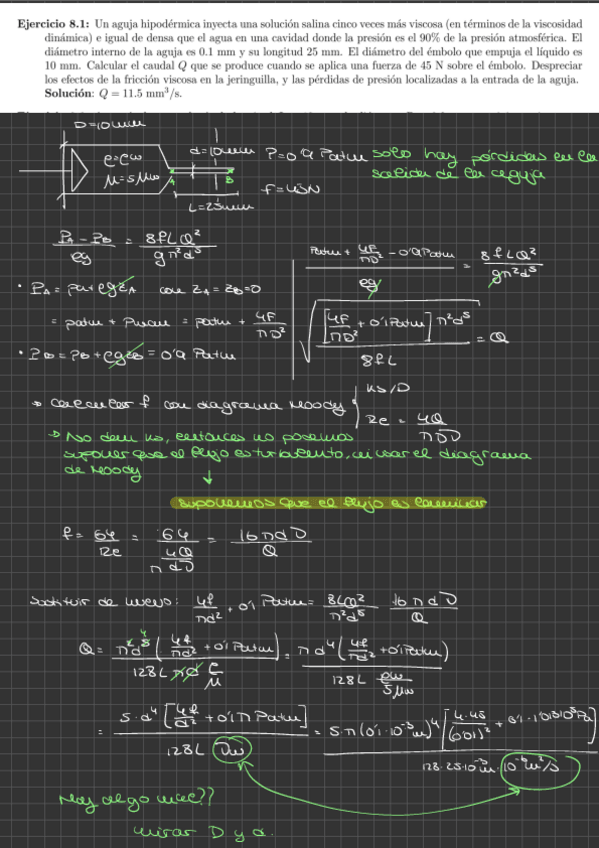 Ejercicio 8.1: Un aguja hipodérmica inyecta una solución salina cinco veces más viscosa (en términos de la viscosidad
dinámica) e igual de densa que el agua en una cavidad donde la presión es el 90% de la presión atmosférica. El
diámetro interno de la aguja es 0.1 mm y su longitud 25 mm. El diámetro del émbolo que empuja el líquido es
10 mm. Calcular el caudal Q que se produce cuando se aplica una fuerza de 45 N sobre el émbolo. Despreciar
los efectos de la fricción viscosa en la jeringuilla, y las pérdidas de presión localizadas a la entrada de la aguja.
Solución: Q = 11.5 mm³/s.
D=10mm
P=0'9 Patm
solo hay pérdidas en la
salida de la aguja
ρ=ρw
μ=5μw
A
B
L=25mm
PA - PB / ρg = 8fLQ² / gπ²d⁵
Patm + 4F/πD² - 0'9Patm / ρg = 8fLQ² / gπ²d⁵
• PA = pa + ρgzA con zA = zB = 0
= patm + = patm + 4F/πD²
√([4F/πD² + 0'1Patm] π²d⁵ / 8fL) = Q
• PB = PB + ρgzB = 0'9 Patm
→ calcular f con diagrama Moody
ks/D
Re = 4Q/πDν
→ No dan ks, entonces no podemos
suponer que el flujo es turbulento, ni usar el diagrama
de Moody
suponemos que el flujo es laminar
f = 64/Re = 64 / (4Q/πdν) = 16πdν/Q
Sustituir de nuevo: 4F/πd² + 0'1 Patm = 8LQ²/π²d⁵ 16πdν/Q
Q = π²d⁵ (4F/πd² + 0'1Patm) / 128L πd ρ/μ = πd⁴ (4F/πd² + 0'1Patm) / 128L ρw/5μw
= 5·d⁴ [4F/d² + 0'1π Patm] / 128L νw = 5π(0'1·10⁻³m)⁴ [4·45/(0'01)² + 0'1·1'013·10⁵Pa] / 128·25·10⁻³m·10⁻⁶m²/s
Hay algo mal??
mirar D y d.